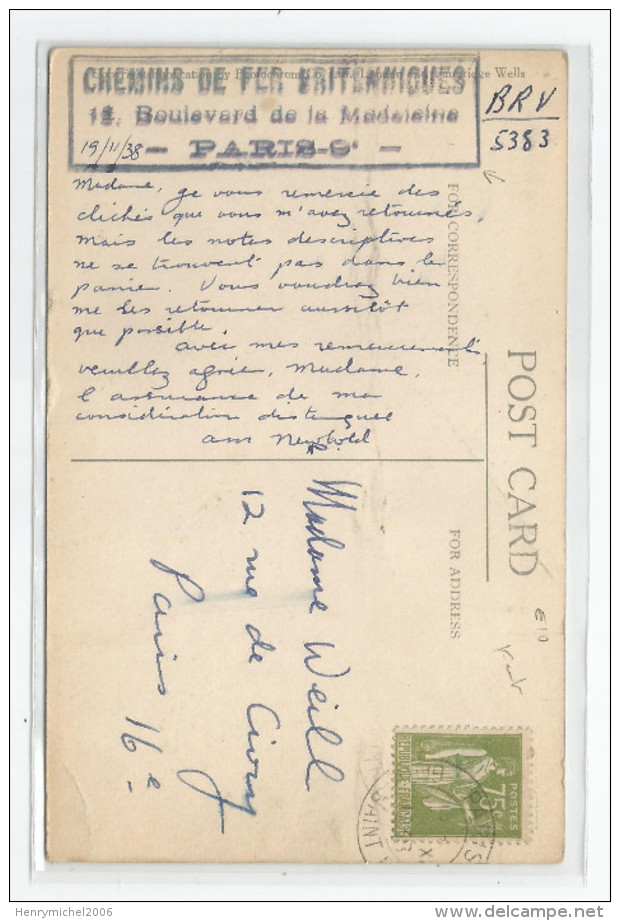 CHEMINS DE FER BRITANNIQUES
12, Boulevard de la Madeleine
19/11/38 — PARIS-9e —
BRV
5383
Madame, je vous remercie des
clichés que vous m'avez retournés,
mais les notes descriptives
ne se trouvent pas dans le
panier. Vous voudrez bien
me les retourner aussitôt
que possible.
avec mes remerciements
veuillez agréer, Madame,
l'assurance de ma
considération distinguée
FOR CORRESPONDENCE
POST CARD
FOR ADDRESS
Madame Weill
12 rue de Civry
Paris 16e
E10
REPUBLIQUE FRANÇAISE
75c
POSTES
PARIS
SAINT
Henrymichel2006
delcampe.net